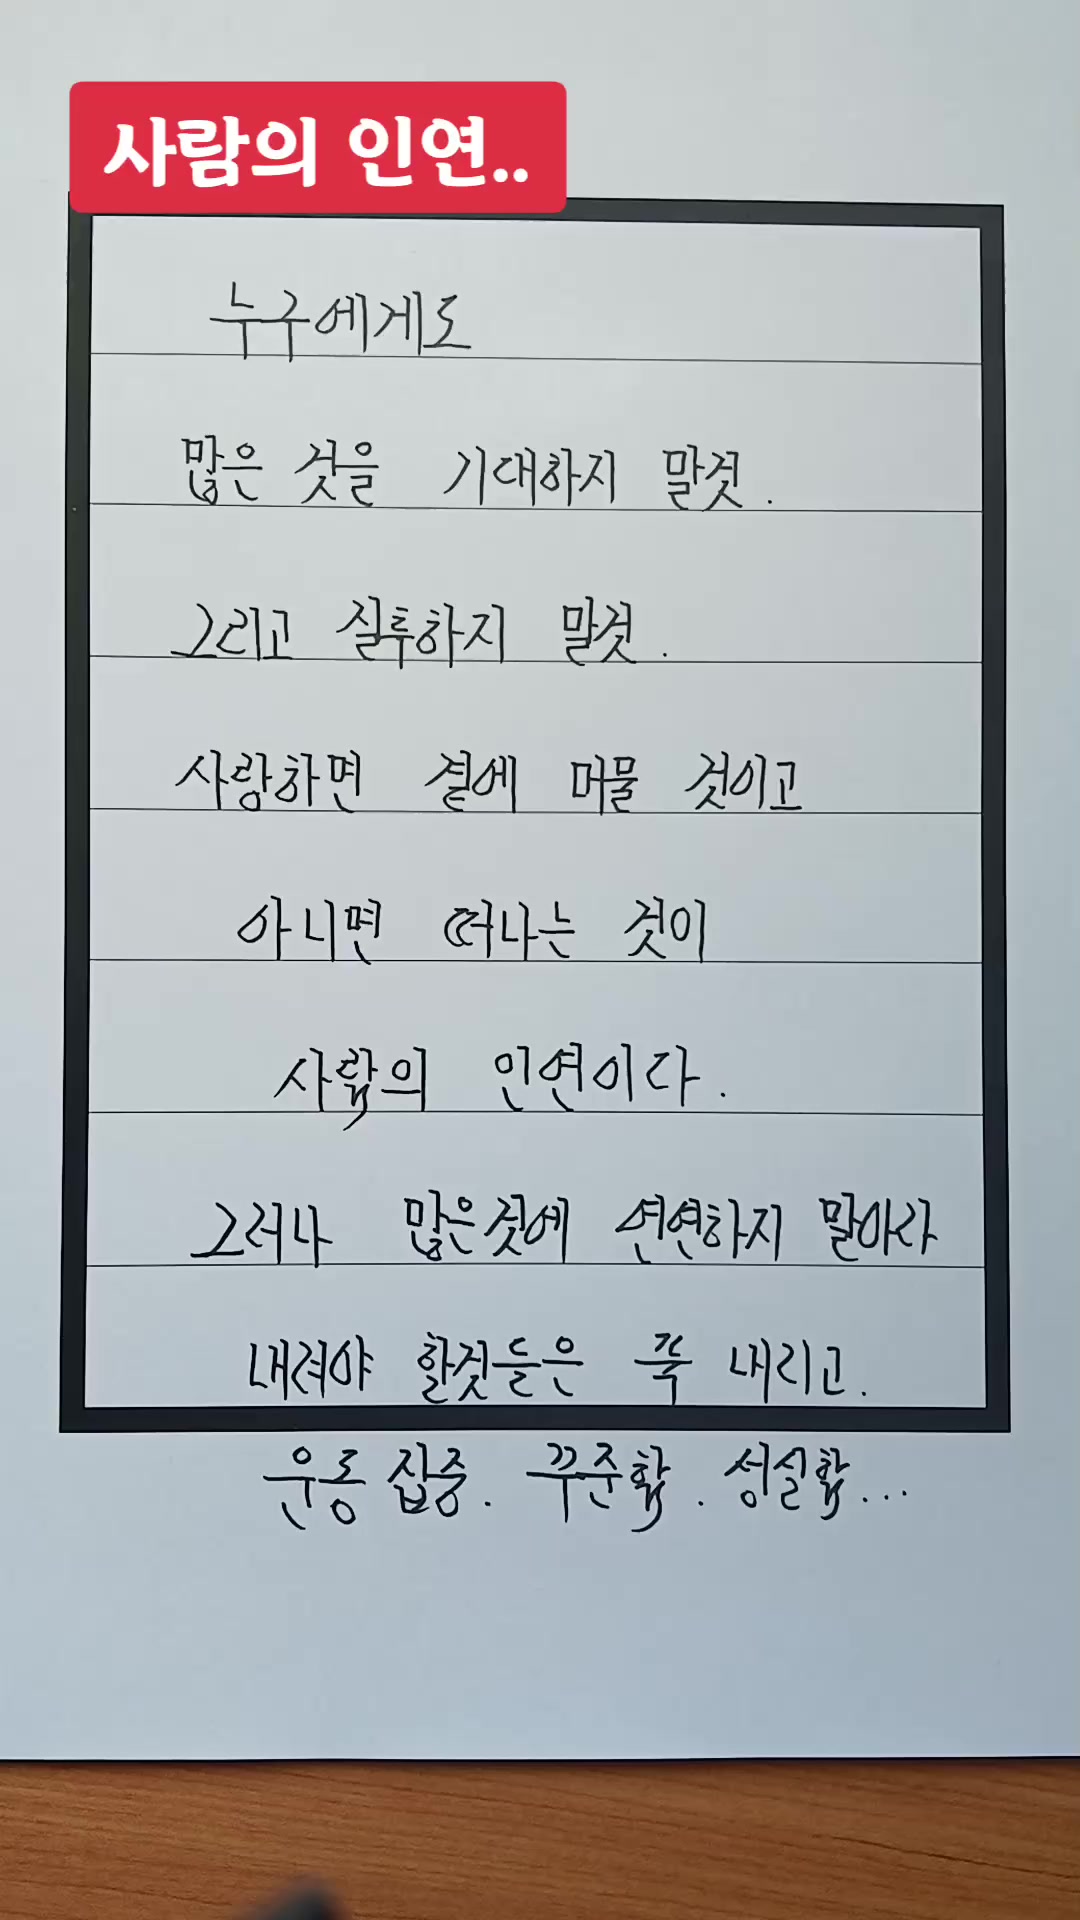 사람의 인연..
누구에게도
많은 것을 기대하지 말것.
그리고 질투하지 말것.
사랑하면 곁에 머물 것이고
아니면 떠나는 것이
사람의 인연이다.
그러나 많은것에 연연하지 말아라
내려야 할것들은 쭉 내리고.
운동 집중. 꾸준함. 성실함...